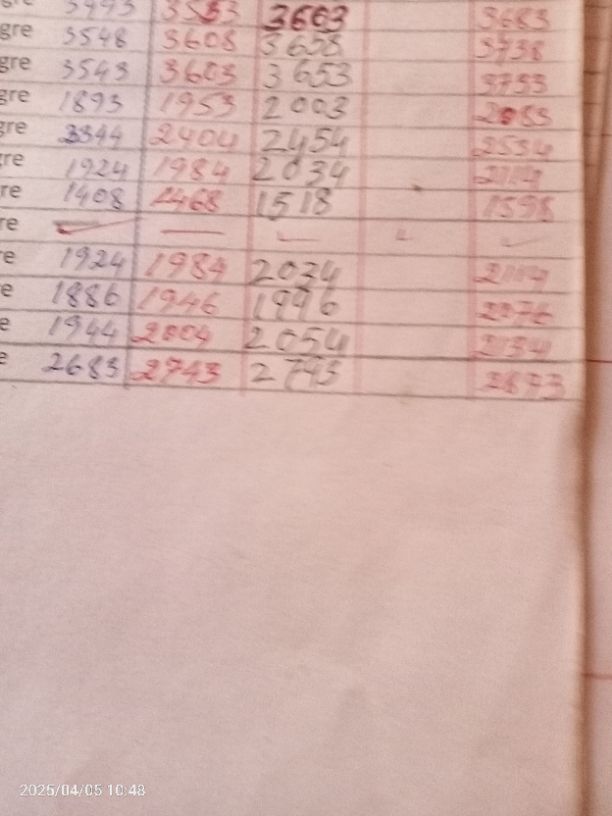 gre 3493 3553 3603 3683
gre 3548 3608 3658 3738
gre 3543 3603 3653 3733
gre 1893 1953 2003 2083
gre 2344 2404 2454 2534
gre 1924 1984 2034 2114
re 1408 1468 1518 1598
re
e 1924 1984 2034 2114
e 1886 1946 1996 2076
e 1944 2004 2054 2134
e 2683 2743 2793 2873
2025/04/05 10:48